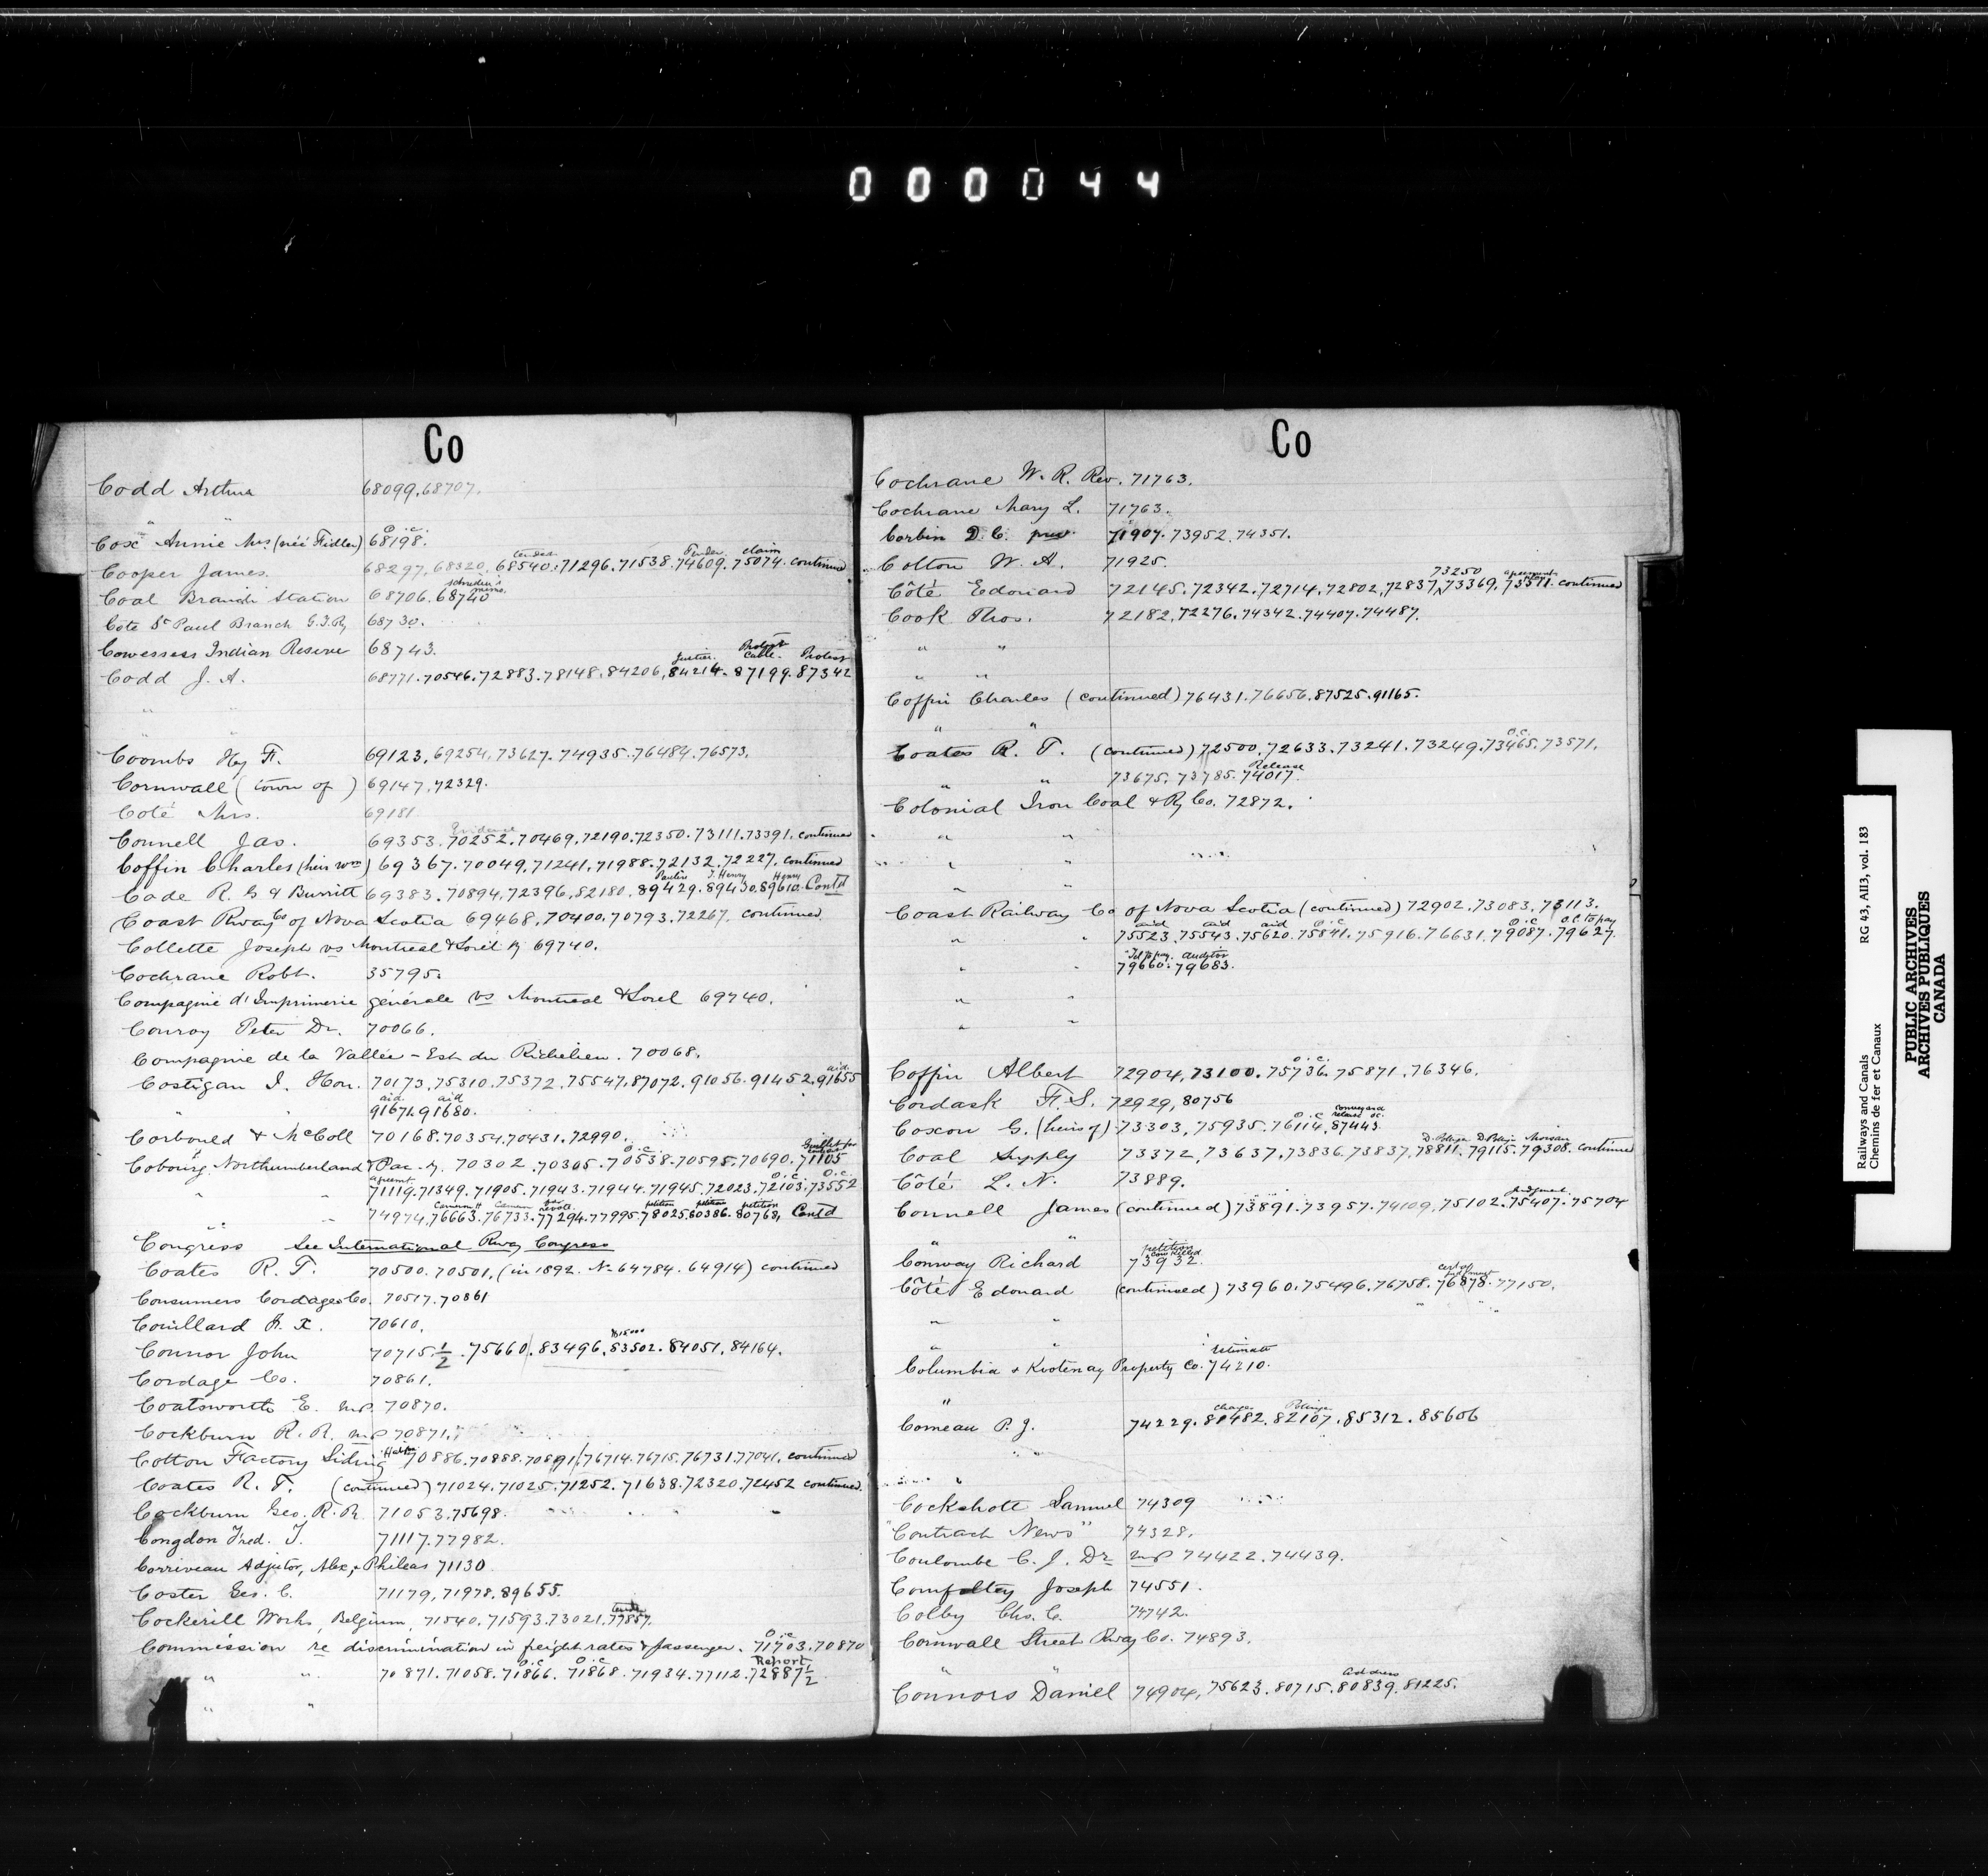 000044
Co
Codd Arthur 68099.68707.
" "
O.C.
Cox Annie Mrs (née Fidler) 68198.
tender Tender claim
Cooper James. 68297.68320.68540.71296.71538.74609.75074. continued
Schreiber's memo.
Coal Branch Station 68706.68740
Cote St Paul Branch G.T.Ry 68730.
Cowessess Indian Reserve 68743.
Justice. Protest Cattle. Protest
Codd J. A. 68771.70546.72883.78148.84206.84214.87199.87342
" "
" "
Coombs Hy F. 69123.69254.73627.74935.76484.76573.
Cornwall (town of) 69147.72329.
Coté Mrs. 69181
Evidence
Connell Jas. 69353.70252.70469.72190.72350.73111.73391. continued
Coffin Charles (heir Wm) 69367.70049.71241.71988.72132.72227. continued
J. Henry Henry
Code R. G & Burritt 69383.70894.72396.82180.89429.89430.89610. Contd
Coast Rway Co of Nova Scotia 69468.70400.70793.72267. continued.
Collette Joseph vs Montreal & Sorel Ry 69740.
Cochrane Robt. 35795.
Compagnie d'Imprimerie générale vs Montreal & Sorel 69740.
Conroy Peter Dr. 70066.
Compagnie de la Vallée-Est du Richelieu. 70068.
aid
Costigan J. Hon. 70173.75310.75372.75547.87072.91056.91452.91655
aid aid
" " 91671.91680.
Corbould & McColl 70168.70354.70431.72990.
O.C. Guillet for
Cobourg Northumberland & Pac. Ry. 70302.70305.70538.70595.70690.71105
agreemt. O.C. O.C.
" " 71119.71349.71905.71943.71944.71945.72023.72103.73552
Cameron Cameron revote petition petition petition
74974.76663.76733.77294.77995.78025.80386.80768. Contd
" "
Congress See International Rway Congress
Coates R. T. 70500.70501. (in 1892. No 64784.64914) continued
Consumers Cordage Co. 70517.70861
Couillard F. X. 70610.
Connor John 70715 1/2.75660.83496.83502.84051.84164.
Cordage Co. 70861.
Coatsworth E. M.P. 70870.
Cockburn R. R. M.P 70871.
Halifax
Cotton Factory Siding 70886.70888.70891.76714.76715.76731.77041. continued
Coates R. T. (continued) 71024.71025.71252.71638.72320.72452 continued.
Cockburn Geo. R. R. 71053.75698.
Congdon Fred. T. 71117.77982.
Corriveau Adjutor, Alex, & Phileas 71130
Coster Geo. C. 71179.71978.89655.
tender
Cockerill Works, Belgium, 71540.71593.73021.77857.
O.C
Commission re discrimination in freight rates & passenger. 71703.70870
O.C O.C Report
" " 70871.71058.71866.71868.71934.77112.72887 1/2
" "
Co
Cochrane W. R. Rev. 71763.
Cochrane Mary L. 71763.
Corbin D. C. pres. 71907.73952.74351.
Colton W. A. 71925.
73250 agreement
Côté Edouard 72145.72342.72714.72802.72837.73369.73571. continued
Cook Thos. 72182.72276.74342.74407.74487.
" "
" "
Coffin Charles (continued) 76431.76656.87525.91165.
" "
O.C.
Coates R. T. (continued) 72500.72633.73241.73249.73465.73571.
Release
" " 73675.73785.74017.
Colonial Iron Coal & Ry Co. 72872.
" "
" "
" "
Coast Railway Co of Nova Scotia (continued) 72902.73083.73113.
aid aid aid O.C O.C O.C. to pay
" " 75523.75543.75620.75841.75916.76631.79087.79627.
Tel to pay. auditor
" " 79660.79683.
" "
" "
O.C.
Coffin Albert 72904.73100.75736.75871.76346.
Cordask F. S. 72929.80756
O.C conveyance release O.C.
Coxon G. (heirs of) 73303.75935.76114.87443.
D. Pottinger D. Pottinger Morson
Coal Supply 73372.73637.73836.73837.78811.79115.79308. continued
Côté L. N. 73889.
judgment
Connell James (continued) 73891.73957.74109.75102.75407.75704
" "
petition
cow killed
Conway Richard 73932.
cert of judgment
Côté Edouard (continued) 73960.75496.76758.76878.77150.
" "
" "
Estimate
Columbia & Kootenay Property Co. 74210.
"
charges Pottinger
Comeau P. J. 74229.81482.82107.85312.85606
" "
" "
Cockshott Samuel 74309
"Contract News" 74328.
Coulombe C. J. Dr MP 74422.74439.
Joseph 74551.
Colby Chs. C. 74742.
Cornwall Street Rway Co. 74893.
" "
address
Connors Daniel 74904.75623.80715.80839.81225.
Railways and Canals RG 43, AII3, vol. 183
Chemins de fer et Canaux
PUBLIC ARCHIVES
ARCHIVES PUBLIQUES
CANADA